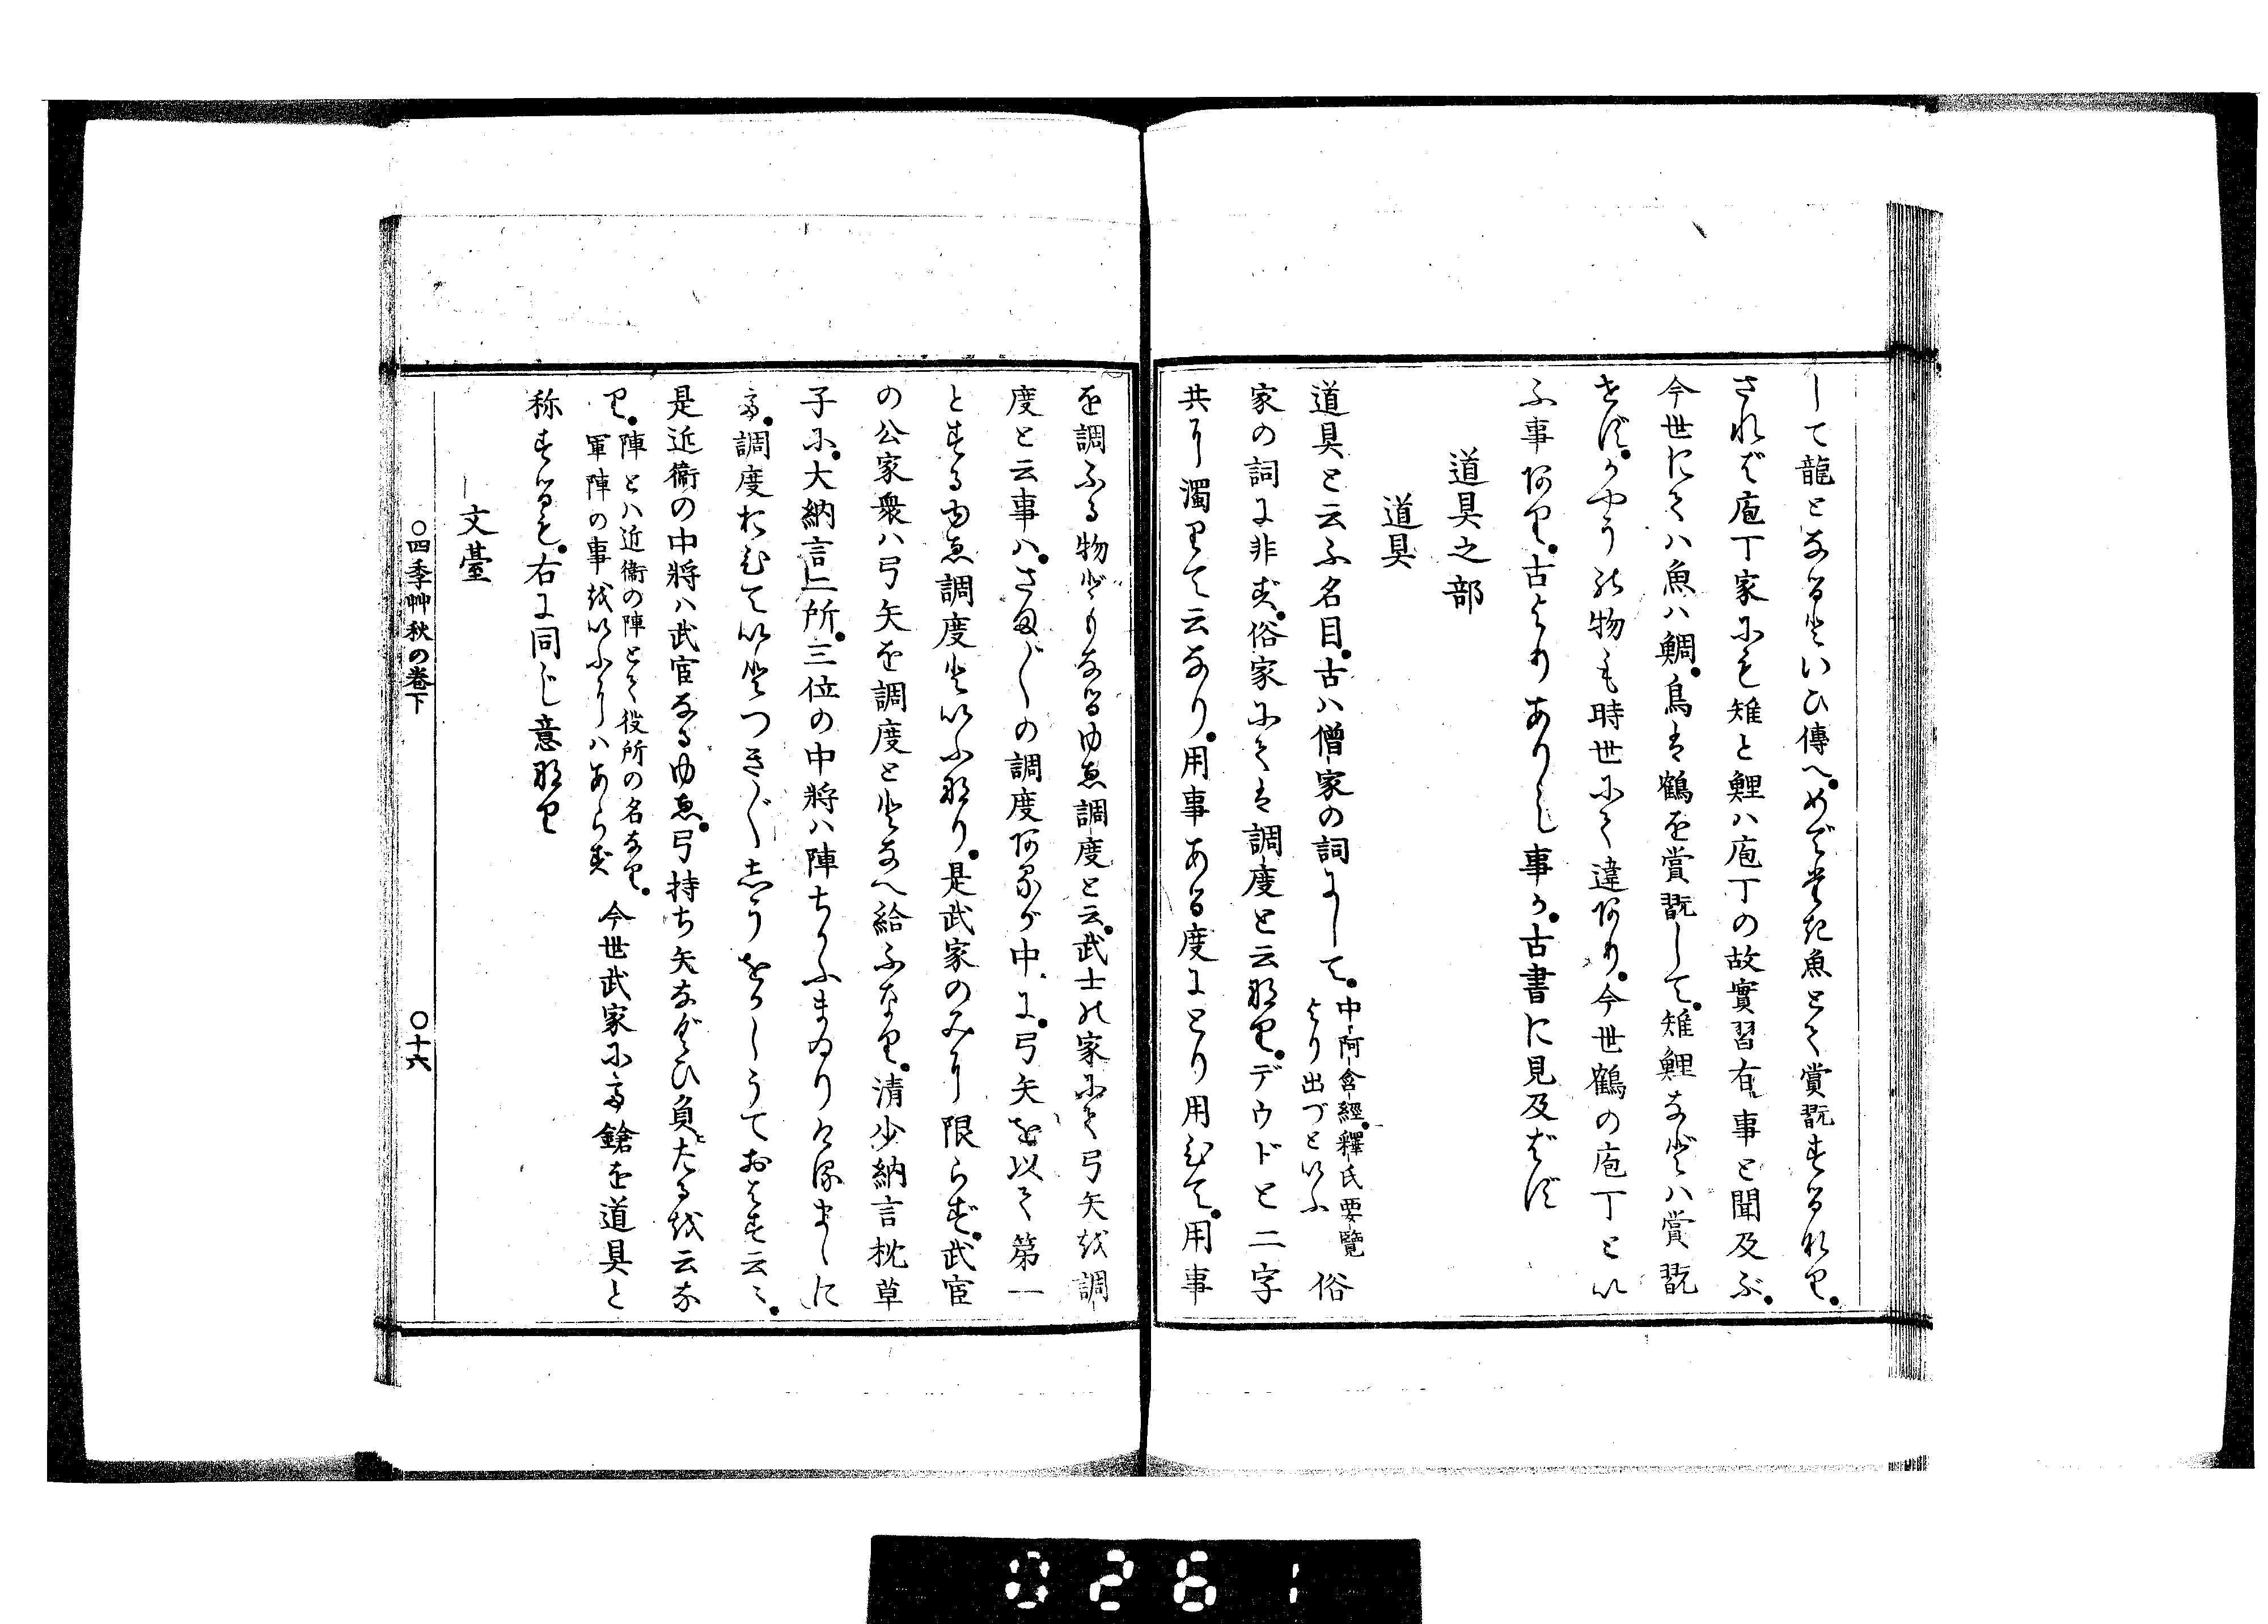 して龍となるといひ傳へ。めでたき魚とて賞翫するなり。
されば庖丁家にも雉と鯉ハ庖丁の故實習有事と聞及ぶ。
今世にてハ魚ハ鯛。鳥は鶴を賞翫して。雉鯉などハ賞翫
せず。かやうの物も時世にて違あり。今世鶴の庖丁とい
ふ事あり。古よりありし事か。古書に見及ばず
道具之部
道具
道具と云ふ名目。古ハ僧家の詞にして。
中阿含經。釋氏要覽
より出づといふ
俗
家の詞に非ず。俗家にては調度と云なり。デウドと二字
共に濁りて云なり。用事ある度にとり用ひて。用事
を調ふる物どもなるゆゑ調度と云。武士の家にて弓矢を調
度と云事ハ。さま〴〵の調度あるが中に。弓矢を以て第一
とするゆゑ調度といふなり。是武家のみに限らず。武官
の公家衆ハ弓矢を調度ととなへ給ふなり。清少納言枕草
子に。大納言二所。三位の中將ハ陣ちかふまゐりけるまゝに
て。調度おひていとつき〴〵しうをかしうておはす云々。
是近衞の中將ハ武官なるゆゑ。弓持ち矢なぐひ負たるを云な
り。
陣とハ近衞の陣とて役所の名なり。
軍陣の事をいふにハあらず
今世武家にて鎗を道具と
称するも。右に同じ意なり
文臺
○四季艸秋の巻下
○十六
0261